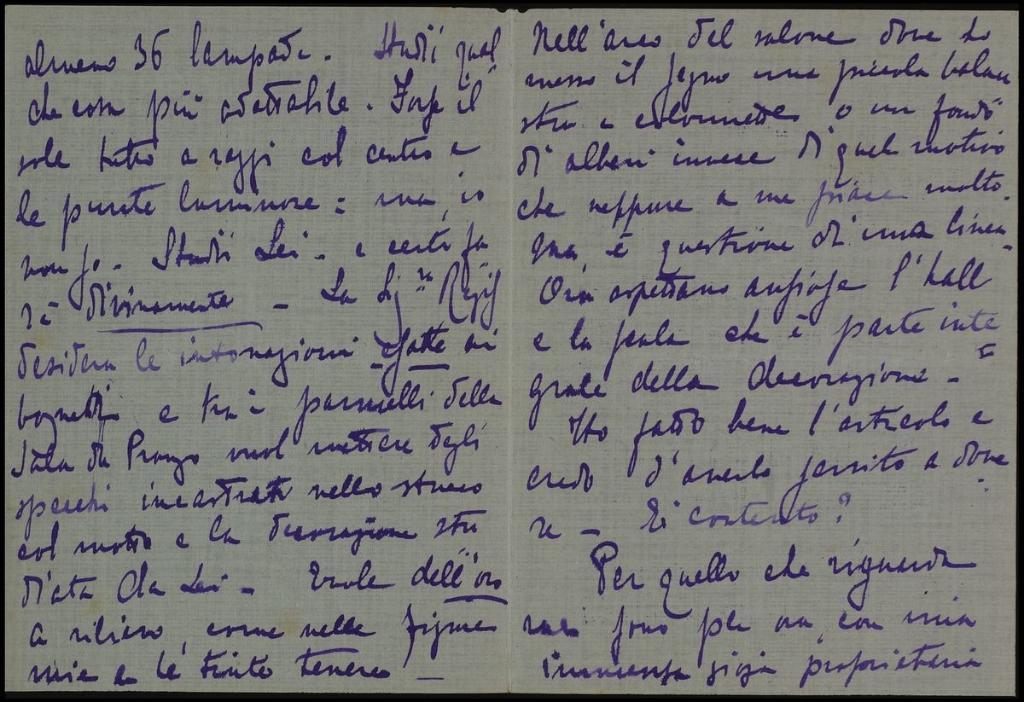 almeno 36 lampade. Studi qual
che cosa più adattabile. Forse il
sole tutto a raggi col centro e
le punte luminose: ma, io
non so. Studi Lei - e certo fa
rà divinamente - La Sig.ra
desidera le intonazioni esatte ai
bozzetti e tra i pannelli della
Sala da Pranzo vuol mettere degli
specchi incastrati nello stucco
col motto e la decorazione stu
diata da Lei - Vuole dell'oro
a rilievo, come nelle figure
mie e le tinte tenere -
Nell'arco del salone dove ho
messo il segno una piccola balau
stra e colonnette o un fondo
di alberi invece di quel motivo
che neppure a me piace molto.
Ma è questione di una linea.
Ora aspettano ansiose l'hall
e la scala che è parte inte
grale della decorazione -
Ho fatto bene l'articolo e
credo d'averlo servito a dove
re - È contento?
Per quello che riguarda
me sono per ora, con mia
immensa gioia proprietaria